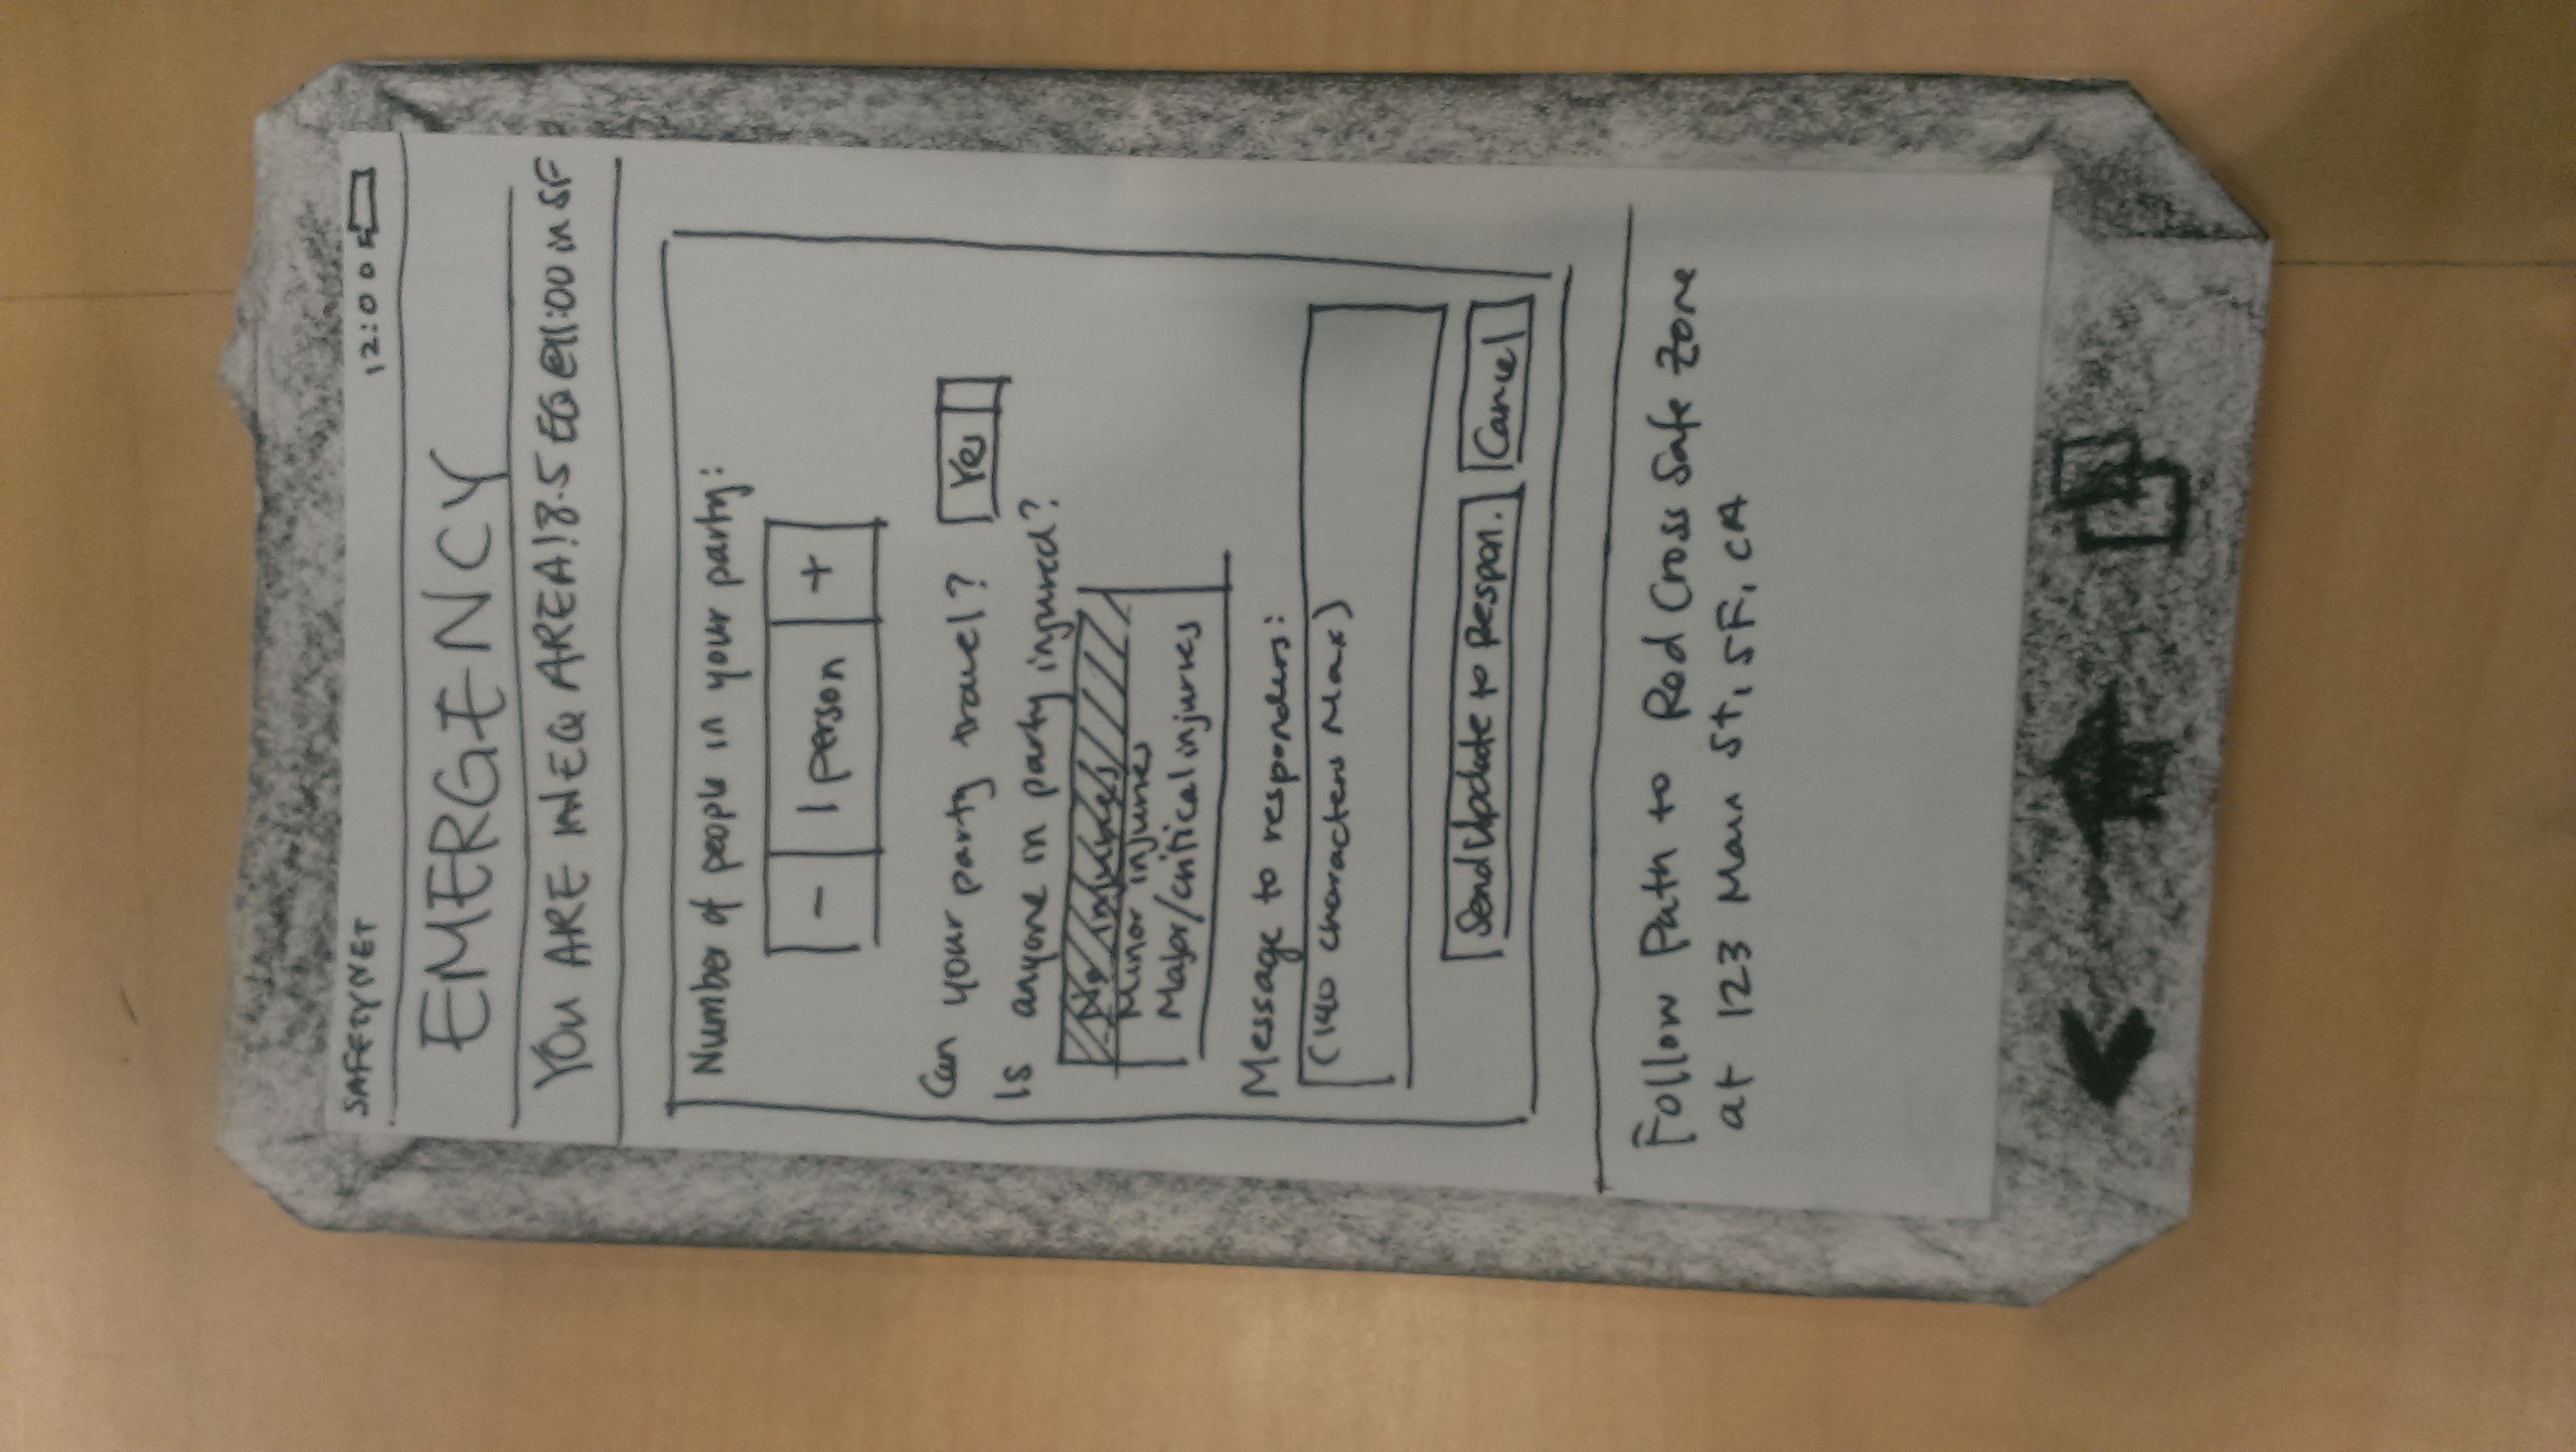 SAFETYNET 12:00
EMERGENCY
YOU ARE IN EQ AREA! 8.5 EQ @ 11:00 in SF
Number of people in your party:
- 1 person +
Can your party travel? Yes
Is anyone in party injured?
No injuries
Minor injuries
Major/critical injuries
Message to responders:
(140 characters Max)
Send Update to Respon. Cancel
Follow Path to Red Cross Safe Zone
at 123 Main St, SF, CA